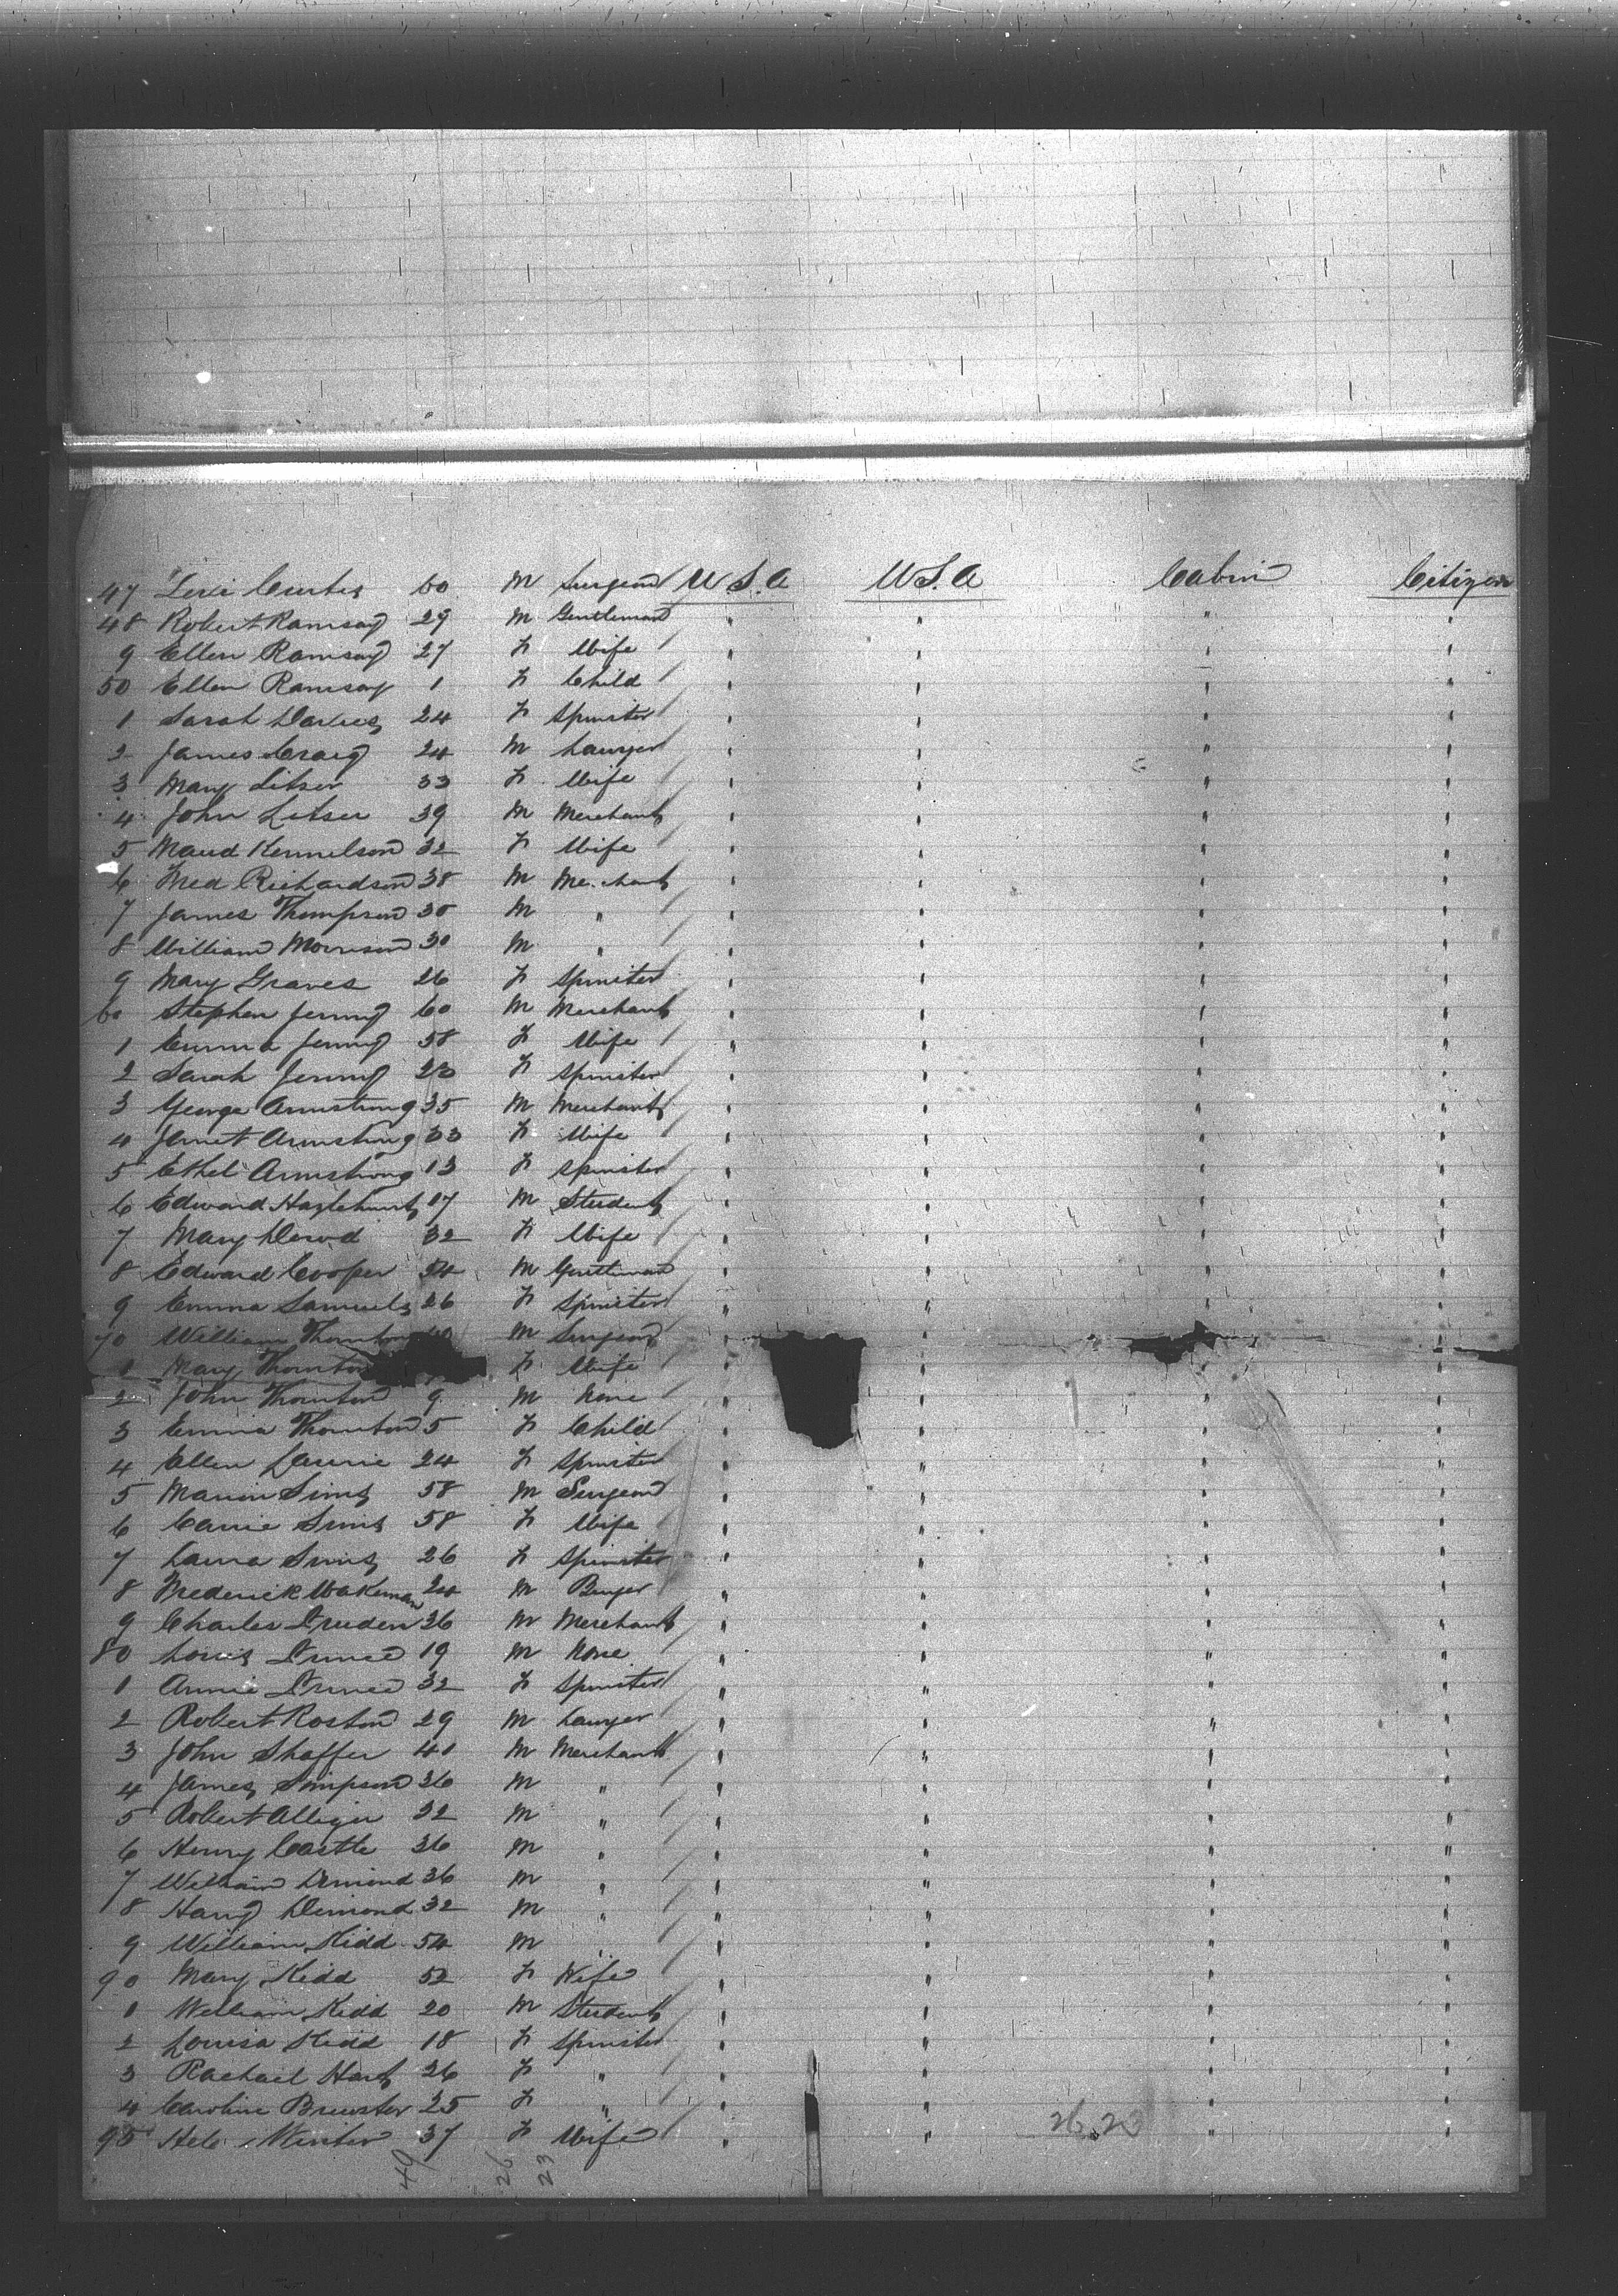 47 Levi Curtis 60 M Surgeon U S.A U S.A Cabin Citizen
48 Robert Ramsay 29 M Gentleman " " " "
9 Ellen Ramsay 27 F Wife " " " "
50 Ellen Ramsay 1 F Child " " " "
1 Sarah Davies 24 F Spinster " " " "
2 James Craig 24 M Lawyer " " " "
3 Mary Litser 33 F Wife " " " "
4 John Litser 39 M Merchant " " " "
5 Maud Kennelson 32 F Wife " " " "
6 Fred Richardson 38 M Merchant " " " "
7 James Thompson 30 M " " " " "
8 William Morrison 30 M " " " " "
9 Mary Graves 26 F Spinster " " " "
60 Stephen Jenning 60 M Merchant " " " "
1 Emma Jenning 58 F Wife " " " "
2 Sarah Jenning 23 F Spinster " " " "
3 George Armstrong 35 M Merchant " " " "
4 Janet Armstrong 33 F Wife " " " "
5 Ethel Armstrong 13 F Spinster " " " "
6 Edward Hazlehurst 17 M Student " " " "
7 Mary 32 F Wife " " " "
8 Edward Cooper 54 M Gentleman " " " "
9 Emma Samuels 26 F Spinster " " " "
70 William Thornton M Surgeon " " "
1 Mary Thornton F Wife " "
2 John Thornton 9 M None " " " "
3 Emma Thornton 5 F Child " " " "
4 Ellen Laurie 24 F Spinster " " " "
5 Marion Sims 58 M Surgeon " " " "
6 Carrie Sims 58 F Wife " " " "
7 Laura Sims 26 F Spinster " " " "
8 Frederick Wakeman 24 M Buyer " " " "
9 Charles Pruden 36 M Merchant " " " "
80 Louis Prince 19 M None " " " "
1 Annie Prince 32 F Spinster " " " "
2 Robert Roston 29 M Lawyer " " " "
3 John Shaffer 41 M Merchant " " " "
4 James Simpson 36 M " " " " "
5 Robert Alliger 32 M " " " " "
6 Henry Castle 36 M " " " " "
7 William Dimond 36 M " " " " "
8 Harry Dimond 32 M " " " " "
9 William Kidd 54 M " " " " "
90 Mary Kidd 52 F Wife " " " "
1 William Kidd 20 M Student " " " "
2 Louisa Kidd 18 F Spinster " " " "
3 Rachael Hart 26 F " " " " "
4 Caroline Brewster 25 F " " " " "
95 Winter 37 F Wife " " 26.23 " "
49 26 23